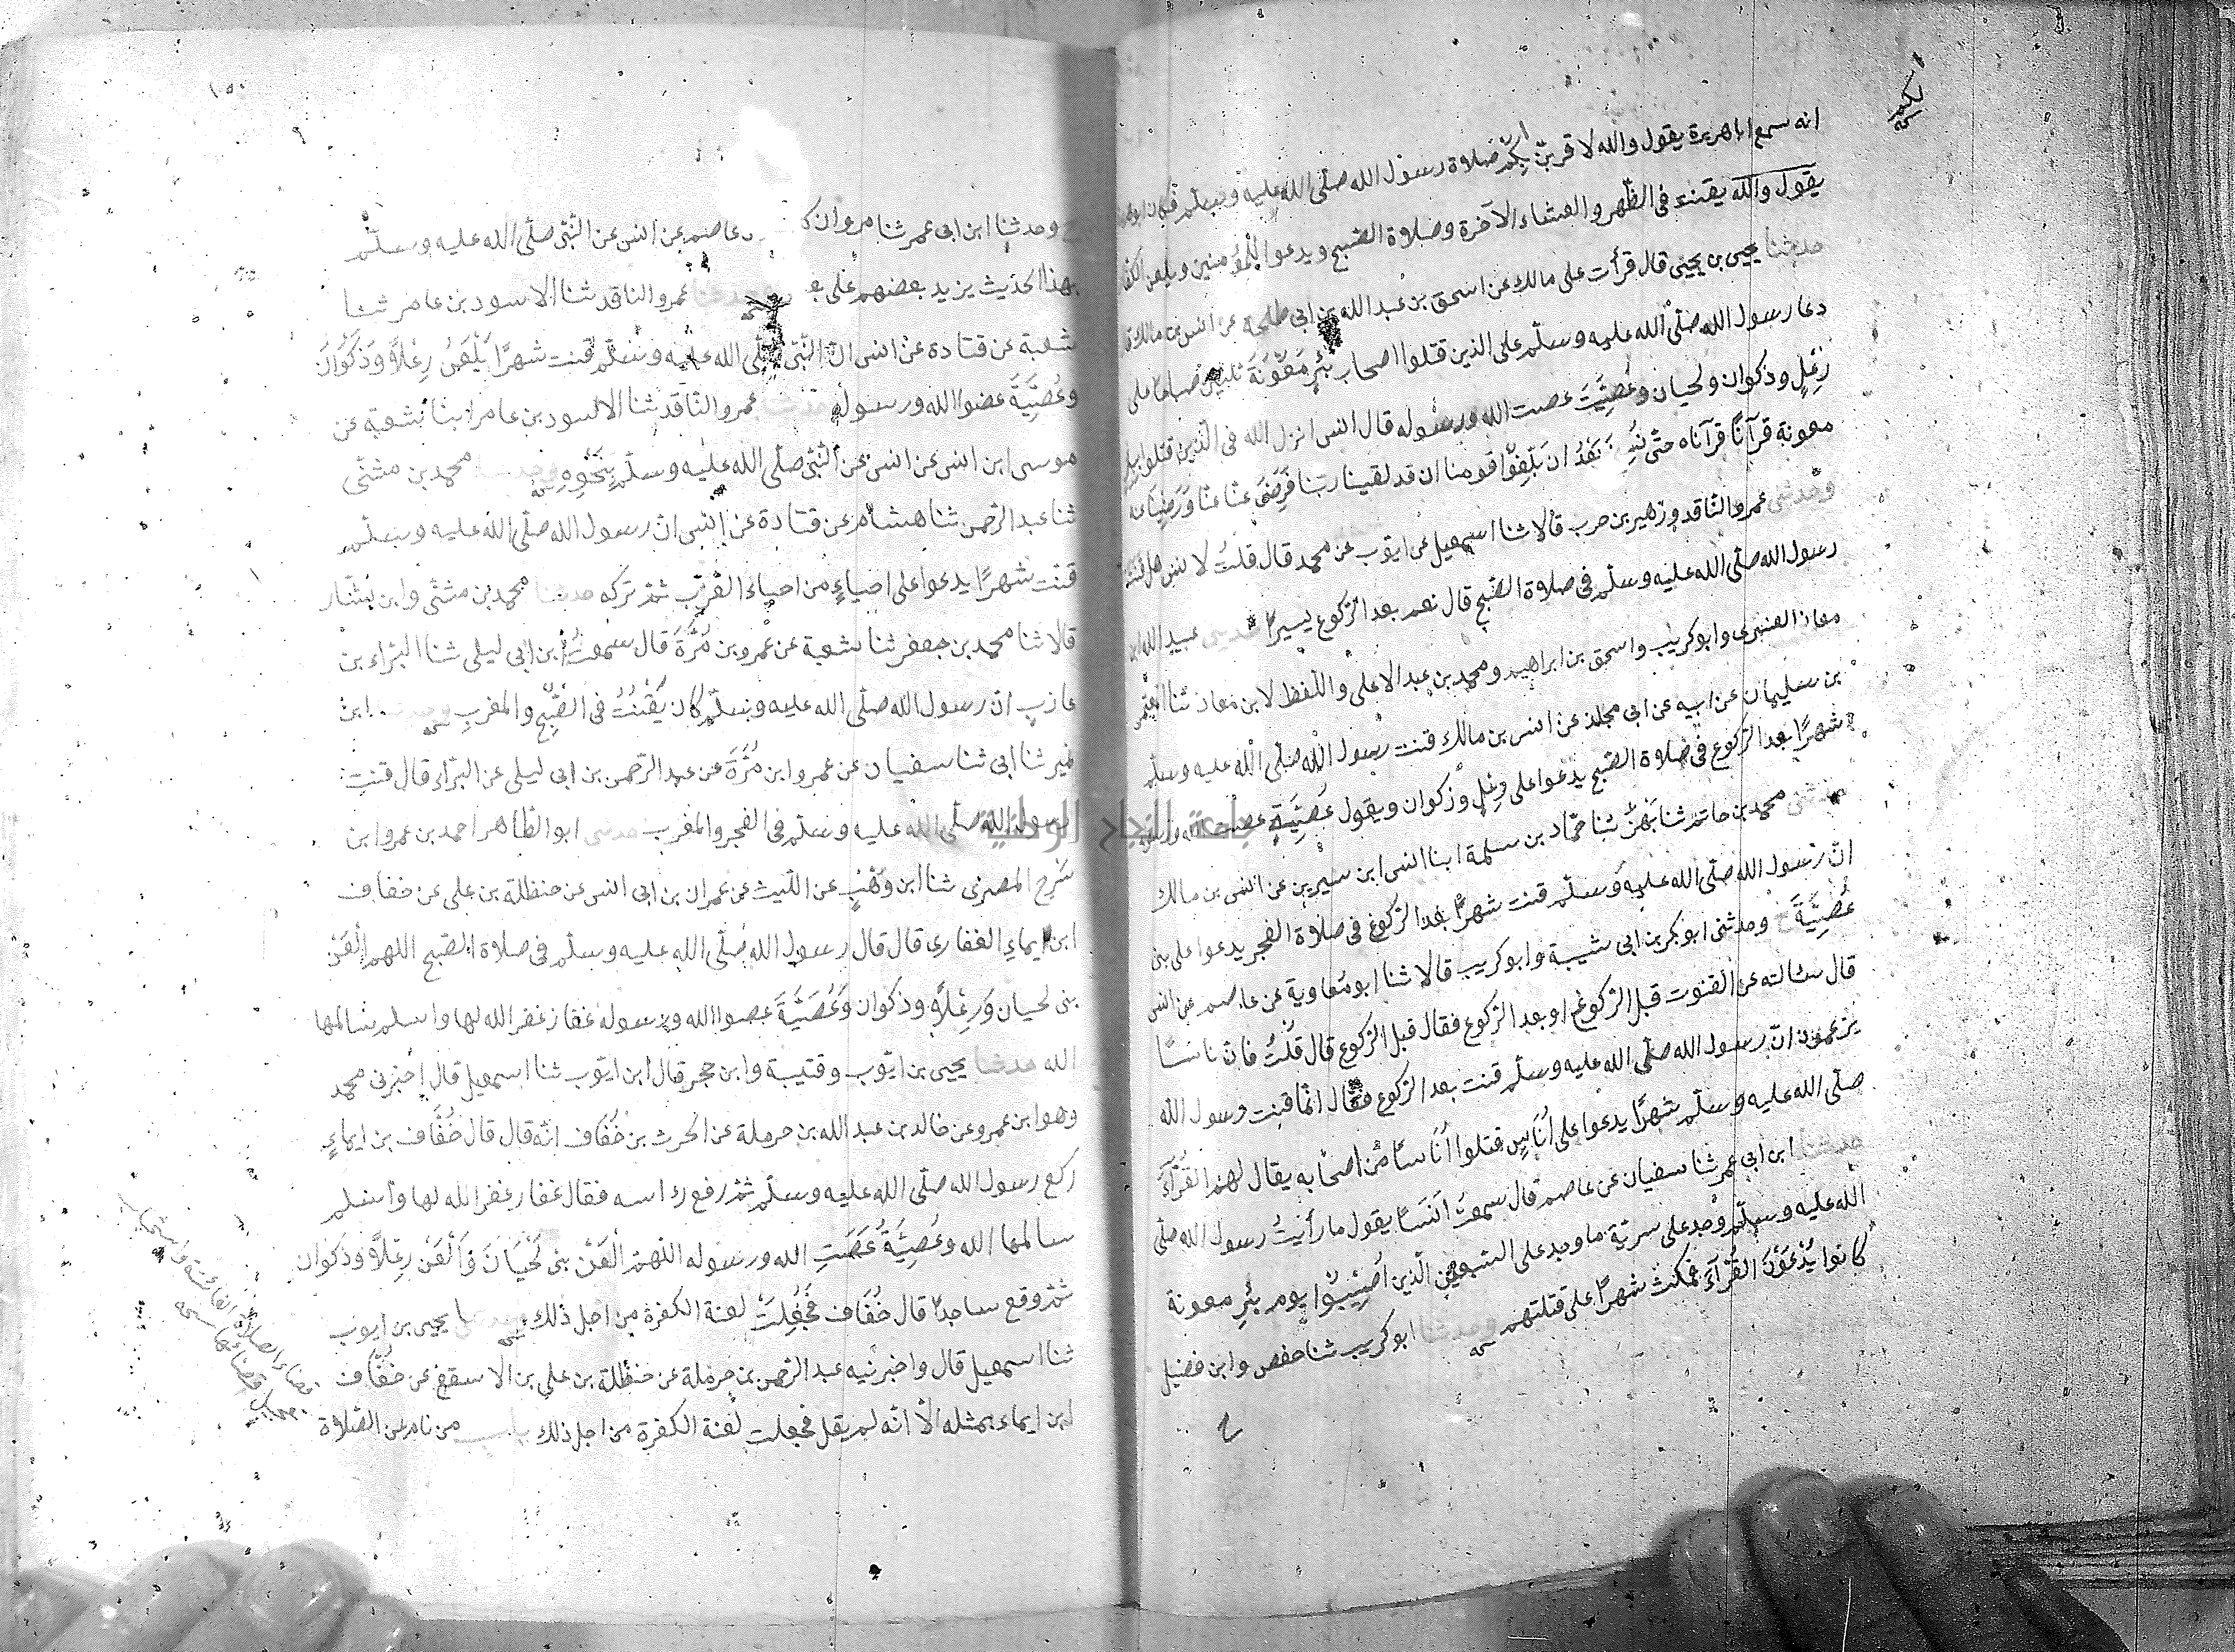 لكم
انه سمع ابا هريرة يقول والله لاقربنّ بكم صلاة رسول الله صلّى الله عليه وسلّم فكان ابو هريرة
يقول والله يقنت فى الظّهر والعشاء الآخرة وصلاة الصّبح ويدعوا للمؤمنين ويلعن الكفار
حدثنا يحيى بن يحيى قال قرأت على مالك عن اسحق بن عبد الله بن ابى طلحة عن انس بن مالك قال
دعا رسول الله صلّى الله عليه وسلّم على الذين قتلوا اصحاب بئر معونة ثلثين صباحا على
رعل وذكوان ولحيان وعصيّة عصت الله ورسوله قال انس انزل الله فى الذين قتلوا ببئر
معونة قرآنًا قرآناه حتّى نسخ بعد ان بلغوا قومنا ان قد لقينا ربنا فرضى عنّا ورضينا عنه
وحدثنى عمرو الناقد وزهير بن حرب قالا ثنا اسمعيل عن ايوب عن محمد قال قلت لانس هل قنت
رسول الله صلّى الله عليه وسلّم فى صلاة الصّبح قال نعم بعد الرّكوع يسيرًا حدثنى عبيد الله بن
معاذ العنبرى وابو كريب واسحق بن ابراهيم ومحمد بن عبد الاعلى واللفظ لابن معاذ ثنا المعتمر
بن سليمان عن ابيه عن ابى مجلز عن انس بن مالك قنت رسول الله صلّى الله عليه وسلّم
شهرًا بعد الرّكوع فى صلاة الصّبح يدعوا على رعل وذكوان ويقول عصيّة عصت الله ورسوله
حدثنى محمد بن حاتم ثنا بهز ثنا حمّاد بن سلمة ابنا انس ابن سيرين عن انس بن مالك
انّ رسول الله صلّى الله عليه وسلّم قنت شهرًا بعد الرّكوع فى صلاة الفجر يدعوا على بنى
عصيّة وحدثنى ابو بكر بن ابى شيبة وابو كريب قالا ثنا ابو معاوية عن عاصم عن انس
قال سئالته عن القنوت قبل الرّكوع او بعد الرّكوع فقال قبل الرّكوع قال قلت فان ناسًا
يزعمون انّ رسول الله صلّى الله عليه وسلّم قنت بعد الرّكوع فقال انّما قنت رسول الله
صلّى الله عليه وسلّم شهرًا يدعوا على أناس قتلوا أناسًا من اصحابه يقال لهم القرّآء
حدثنا ابن ابى عمر ثنا سفيان عن عاصم قال سمعت انسًا يقول ما رأيت رسول الله صلّى
الله عليه وسلّم وجد على سريّة ما وجد على السّبعين الّذين أصيبوا يوم بئر معونة
كانوا يدعون القرّآء فمكث شهرًا على قتلتهم وحدثنا ابو كريب ثنا حفص وابن فضيل
ح
١٥٠
ح وحدثنا ابن ابى عمر ثنا مروان عاصم عن انس عن النّبى صلّى الله عليه وسلّم
بهذا الحديث يزيد بعضهم على وحدثنا عمرو الناقد ثنا الاسود بن عامر ثنا
شعبة عن قتادة عن انس انّ النّبى صلّى الله عليه وسلّم قنت شهرًا يلعن رعلاً وذكوان
وعصيّة عصوا الله ورسوله حدثنا عمرو النّاقد ثنا الاسود بن عامر ابنا شعبة عن
موسى ابن انس عن انس عن النّبى صلّى الله عليه وسلّم بنحوه وحدثنا محمد بن مثنّى
ثنا عبد الرّحمن ثنا هشام عن قتادة عن انس انّ رسول الله صلّى الله عليه وسلّم
قنت شهرًا يدعوا على احياءٍ من احياء العرب ثمّ تركه حدثنا محمد بن مثنى وابن بشّار
قالا ثنا محمد بن جعفر ثنا شعبة عن عمرو بن مرّة قال سمعت ابن ابى ليلى ثنا البرّاء بن
عازب انّ رسول الله صلّى الله عليه وسلّم كان يقنت فى الصّبح والمغرب وحدثنا ابن
نمير ثنا ابى ثنا سفيان عن عمرو ابن مرّة عن عبد الرّحمن بن ابى ليلى عن البرّاء قال قنت
رسول الله صلّى الله عليه وسلّم فى الفجر والمغرب حدثنى ابو الطّاهر احمد بن عمرو ابن
سرح المصرى ثنا ابن وهب عن اللّيث عن عمران بن ابى انس عن حنظلة بن على عن خفاف
ابن ايماء الغفارى قال قال رسول الله صلّى الله عليه وسلّم فى صلاة الصّبح اللهم العن
بنى لحيان ورعلاً وذكوان وعصيّة عصوا الله ورسوله غفار غفر الله لها واسلم سالمها
الله حدثنا يحيى بن ايّوب وقتيبة وابن حجر قال ابن ايّوب ثنا اسمعيل قال اخبرنى محمد
وهو ابن عمرو عن خالد بن عبد الله بن حرملة عن الحرث بن خفاف انّه قال قال خفاف بن ايماءٍ
ركع رسول الله صلّى الله عليه وسلّم ثمّ رفع راسه فقال غفار غفر الله لها واسلم
سالمها الله وعصيّة عصت الله ورسوله اللهمّ العن بنى لحيان والعن رعلاً وذكوان
ثمّ وقع ساجدًا قال خفاف فجعلت لعنة الكفرة من اجل ذلك وحدثنا يحيى بن ايوب
ثنا اسمعيل قال واخبرنيه عبد الرّحمن بن حرملة عن حنظلة بن على بن الاسقع عن خفاف
ابن ايماء بمثله الّا انّه لم يقل فجعلت لعنة الكفرة من اجل ذلك باب من نام عن الصّلاة
قضاء الصلاة الفائتة واستحباب
تعجيل قضاءها
جامعة النجاح الوطنية